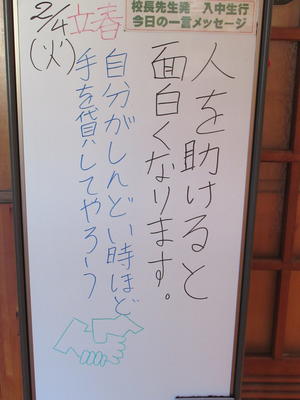 校長先生発 入中生行
今日の一言メッセージ
2/4
(火)
立春
人を助けると
面白くなります。
自分がしんどい時ほど
手を貸してやろう